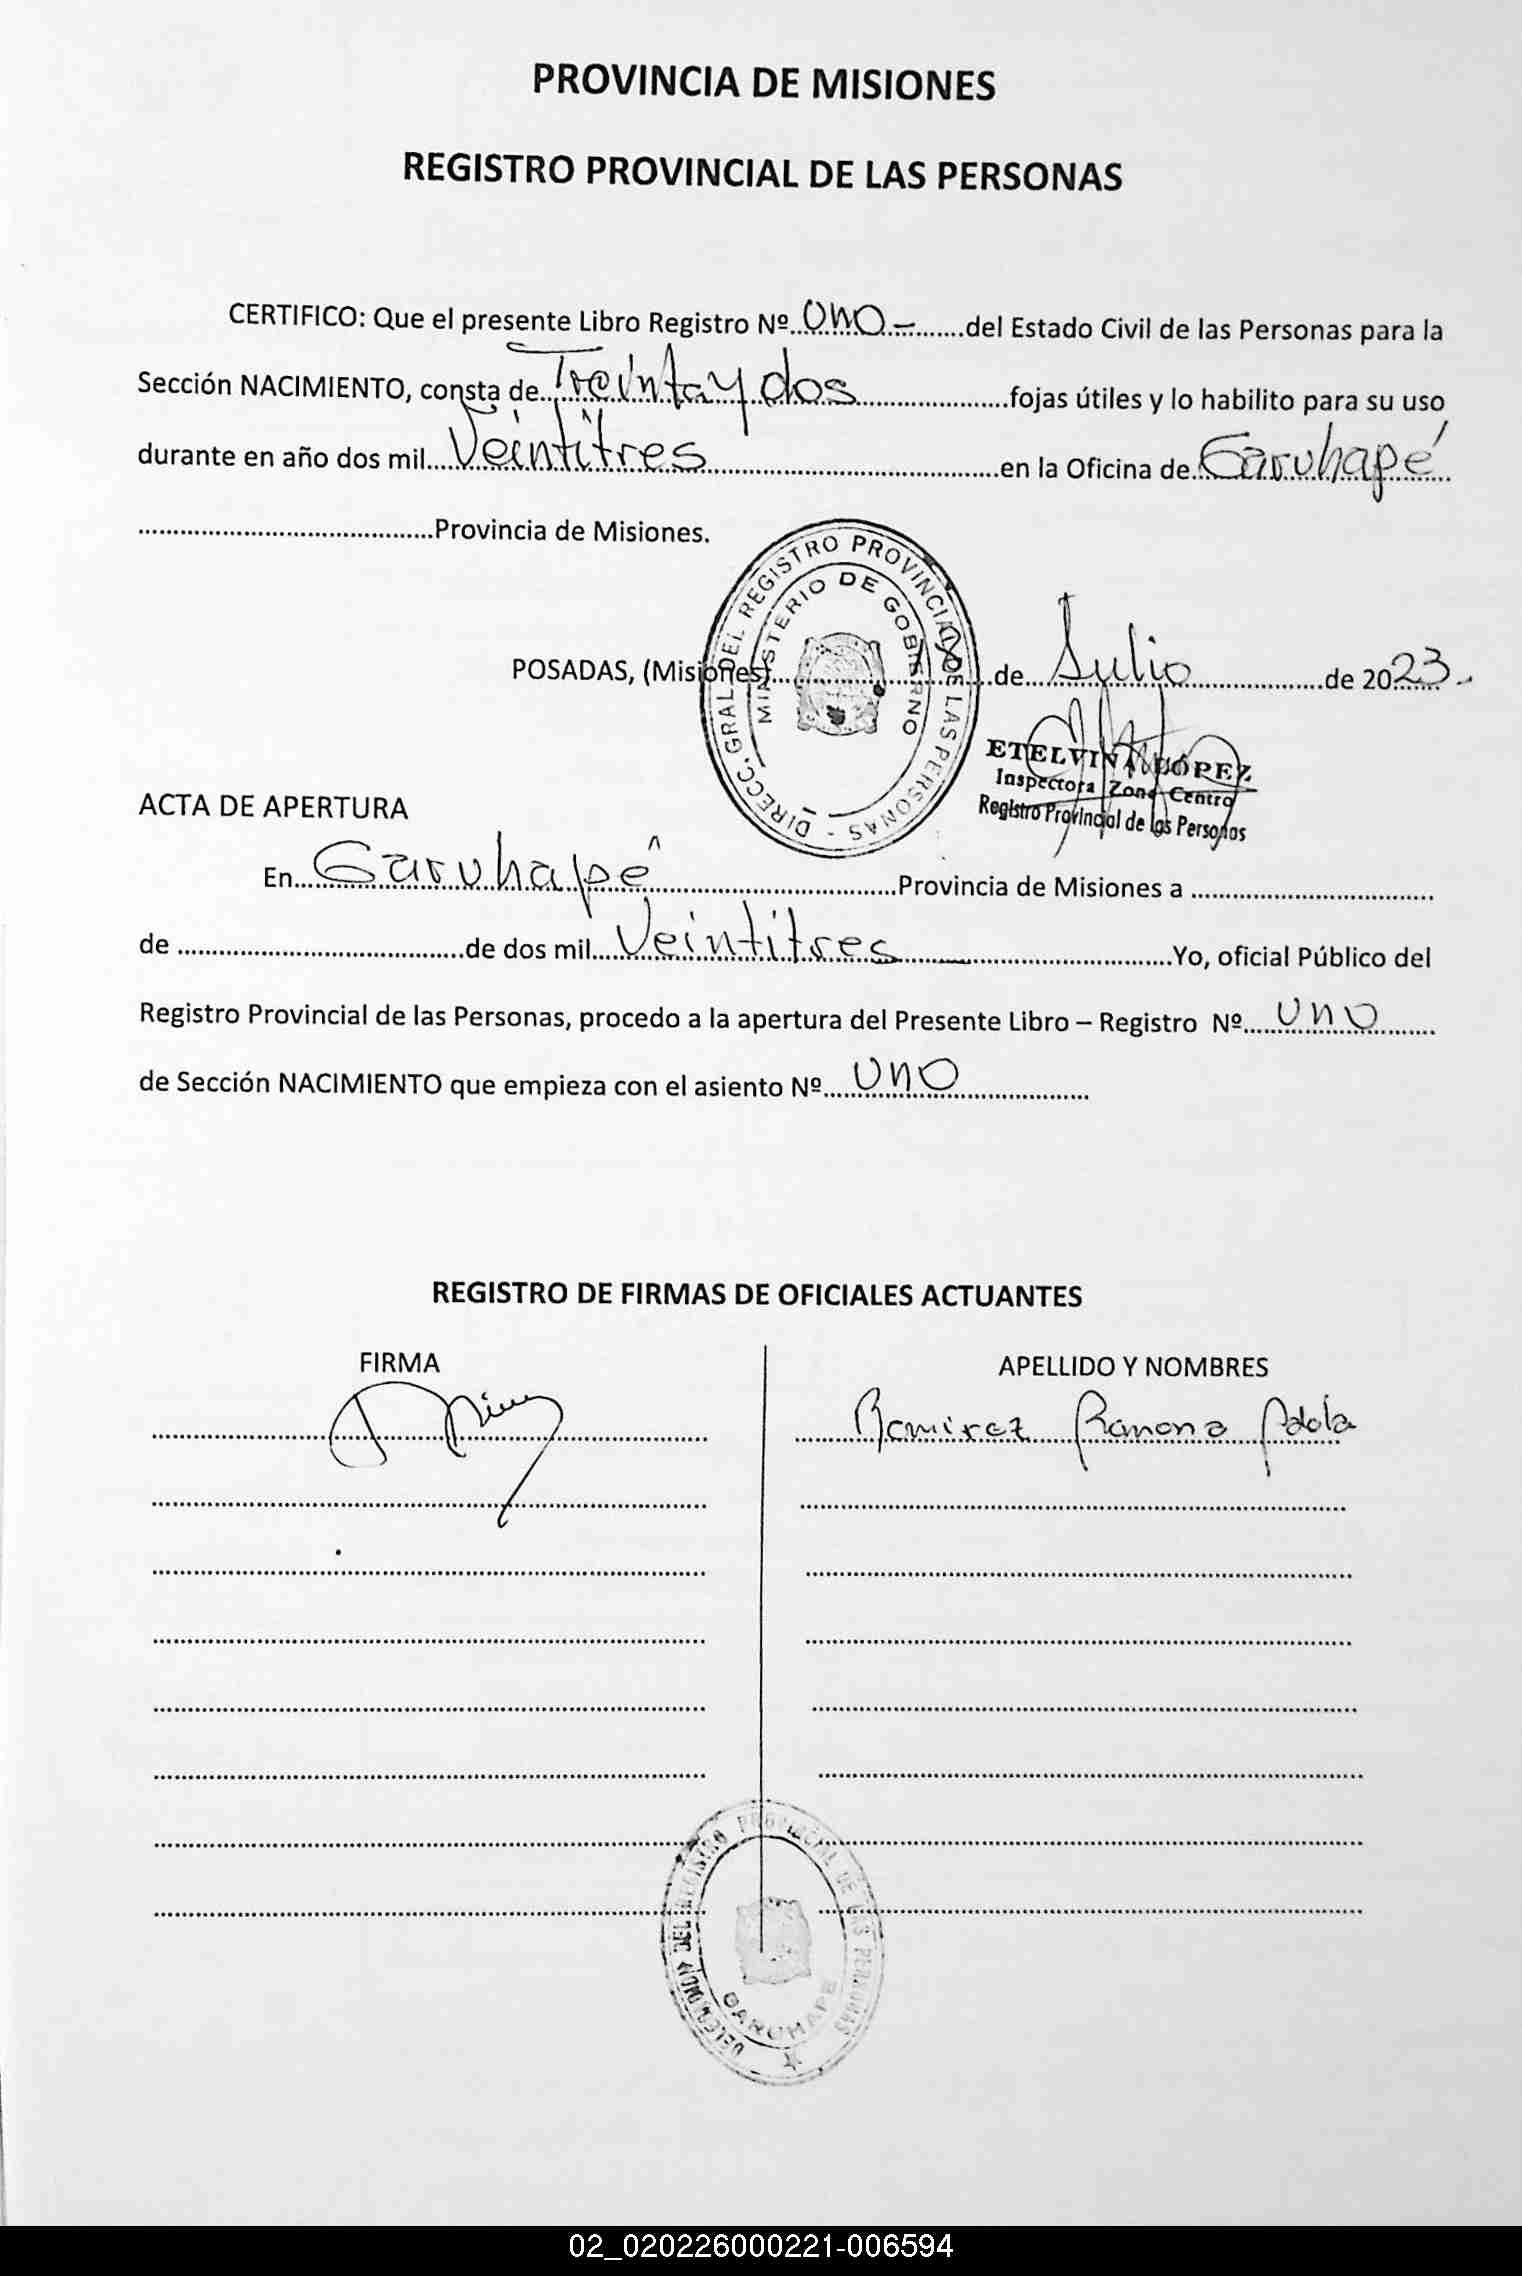 PROVINCIA DE MISIONES
REGISTRO PROVINCIAL DE LAS PERSONAS
CERTIFICO: Que el presente Libro Registro Nº..UNO-........del Estado Civil de las Personas para la
Sección NACIMIENTO, consta de..Treinta y dos......................fojas útiles y lo habilito para su uso
durante en año dos mil...Veintitres..........................................en la Oficina de.Garuhapé
..........................................Provincia de Misiones.
DIRECC. GRAL. DEL REGISTRO PROVINCIAL DE LAS PERSONAS -
MINISTERIO DE GOBIERNO
POSADAS, (Misiones)..............................de...Julio...................de 2023.-
ETELVINA LÓPEZ
Inspectora Zona Centro
Registro Provincial de las Personas
ACTA DE APERTURA
En...Garuhapé...................................Provincia de Misiones a ..................................
de .........................................de dos mil...Veintitres...............................Yo, oficial Público del
Registro Provincial de las Personas, procedo a la apertura del Presente Libro – Registro Nº.....UNO........
de Sección NACIMIENTO que empieza con el asiento Nº....UNO...................
REGISTRO DE FIRMAS DE OFICIALES ACTUANTES
FIRMA APELLIDO Y NOMBRES
Ramirez Ramona
DELEGACION DEL REGISTRO PROVINCIAL DE LAS PERSONAS
GARUHAPE
02_020226000221-006594